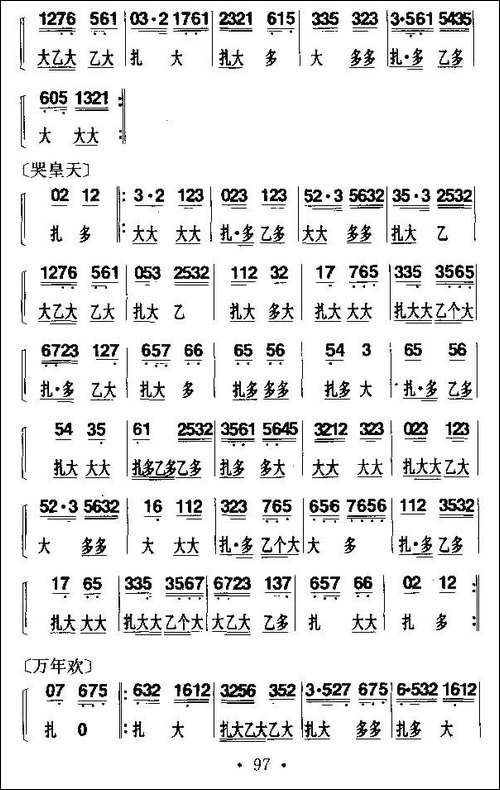 1276 561 | 03·2 1761 | 2321 615 | 335 323 | 3·561 5435
大乙大 乙大 | 扎 大 | 扎大 多 | 大 多多 | 扎·多 乙多
605 1321 :
大 大大 :
〔哭皇天〕
02 12 : 3·2 123 | 023 123 | 52·3 5632 | 35·3 2532
扎 多 : 大大 大大 | 扎·多 乙多 | 大大 多多 | 扎大 乙
1276 561 | 053 2532 | 112 32 | 17 765 | 335 3565
大乙大 乙大 | 扎大 乙 | 扎大 多大 | 扎大 大大 | 扎大大 乙个大
6723 127 | 657 66 | 65 56 | 54 3 | 65 56
扎·多 乙大 | 扎大 多 | 扎多 多多 | 扎多 大 | 扎·多 乙多
54 35 | 61 2532 | 3561 5645 | 3212 323 | 023 123
扎大 大大 | 扎多乙多乙多 | 扎多 多大 | 大大 大大 | 扎大大 乙大
52·3 5632 | 16 112 | 323 765 | 656 7656 | 112 3532
大 多多 | 大 大大 | 扎·多 乙个大 | 大 多 | 扎·多 乙多
17 65 | 335 3567 | 6723 137 | 657 66 | 02 12 :
扎大 大大 | 扎大大 乙个大 | 大乙大 乙多 | 扎 大大 | 扎 多 :
〔万年欢〕
07 675 : 632 1612 | 3256 352 | 3·527 675 | 6·532 1612
扎 0 : 扎 大 | 扎大乙大乙大 | 扎大 多多 | 扎多 大
· 97 ·